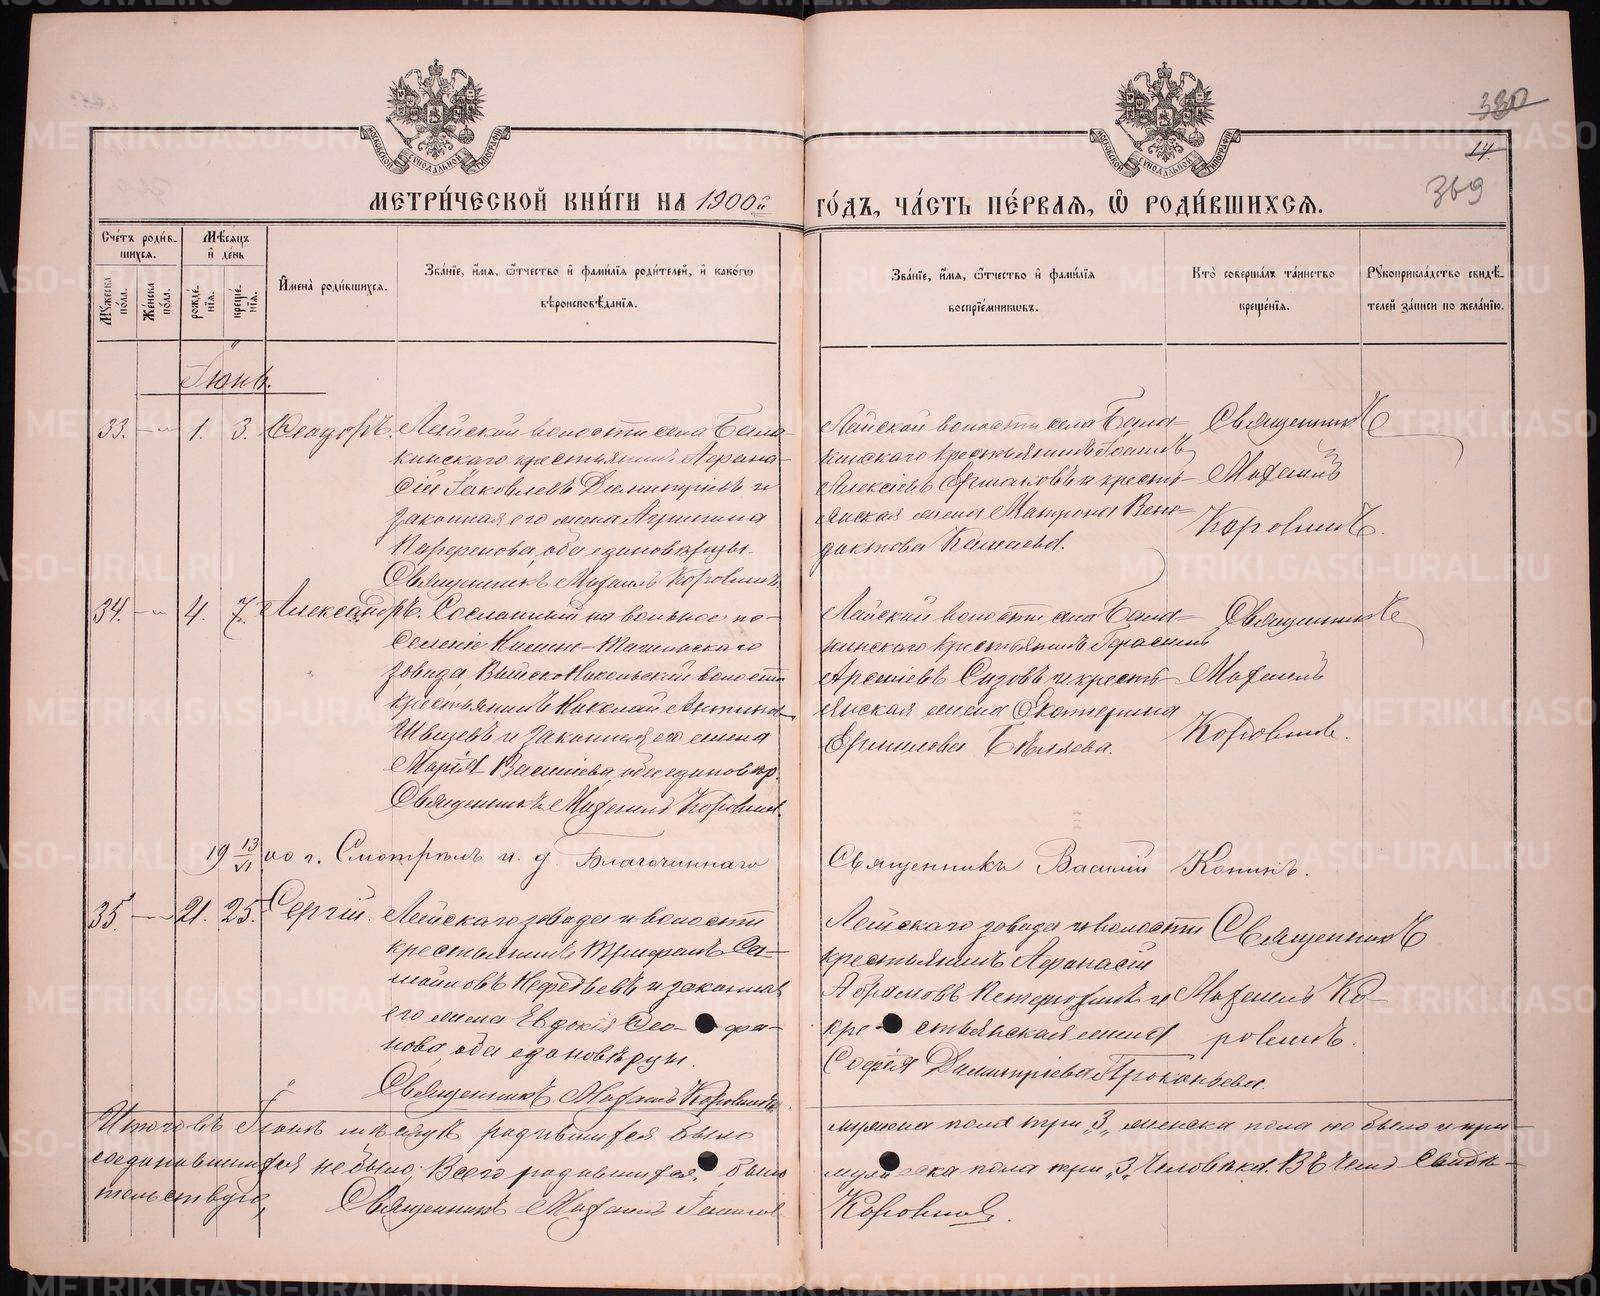 380
14.
369
МЕТРИ́ЧЕСКОЙ КНИ́ГИ НА 1900й ГО́ДЪ, ЧА́СТЬ ПЕ́РВАЯ, Ѡ РОДИ́ВШИХСЯ.
Сче́тъ роди́в-
шихся.
Мѣ́сяцъ
и де́нь
Му́жеска по́ла.
Же́нска по́ла.
рожде́-
нїя.
креще́-
нїя.
Имена̀ роди́вшихся.
Зва́нїе, и́мя, ѻ́тчество и фами́лїя роди́телей, и како́гѡ
вѣроисповѣ́данїя.
Зва́нїе, и́мя, ѻ́тчество и фами́лїя
воспрїе́мникѡвъ.
Кто̀ соверша́лъ та́инство
креще́нїя.
Рукоприкла́дство свидѣ́-
телей за́писи по жела́нїю.
Іюнь.
33. 1. 3. Ѳеодоръ.
Лайской волости села Бала-
кинскаго крестьянинъ Аѳана-
сій Іаковлевъ Димитріевъ и
законная его жена Агрипина
Парѳенова, оба единовѣрцы.
Священникъ Михаилъ Коровинъ.
Лайской волости села Бала-
кинскаго крестьянинъ Іоаннъ
Алексіевъ Ермаковъ и кресть-
янская жена Матрона Вене-
диктова
Священникъ
Михаилъ
Коровинъ.
34. 4. 7. Александръ.
Сосланный на вольное по-
селеніе Нижне-Тагильскаго
завода Выйско Никольской волости
крестьянинъ Николай Антипов
Швецевъ и законная его жена
Марія Василіева, оба единовѣр.
Священникъ Михаилъ Коровинъ.
Лайской волости села Бала-
кинскаго крестьянинъ Герасимъ
Арсеніевъ Сизовъ и кресть-
янская жена Екатерина
Ермилова Бѣляева.
Священникъ
Михаилъ
Коровинъ.
19 13/VI 00 г. Смотрѣлъ и. д. Благочиннаго
Священникъ Василій Конинъ.
35. 21. 25. Сергій.
Лайскаго завода и волости
крестьянинъ Трифонъ Са-
мойловъ Меѳодьевъ и законная
его жена Евдокія Ѳео-фа-
нова, оба единовѣрцы.
Священникъ Михаилъ Коровинъ.
Лайскаго завода и волости
крестьянинъ Аѳанасій
Абрамовъ и
кре-стьянская жена
Софія Димитріева Прокопьева.
Священникъ
Михаилъ Ко-
ровинъ.
Итого въ Іюнѣ мѣсяцѣ родившихся было
мужска пола три „3„ женска пола не было и при-
соединившихся не было; Всего родившихся, было
мужеска пола три „3„ человѣка. Въ чемъ свидѣ-
тельствую,
Священникъ Михаилъ
Коровинъ.
METRIKI.GASO-URAL.RU